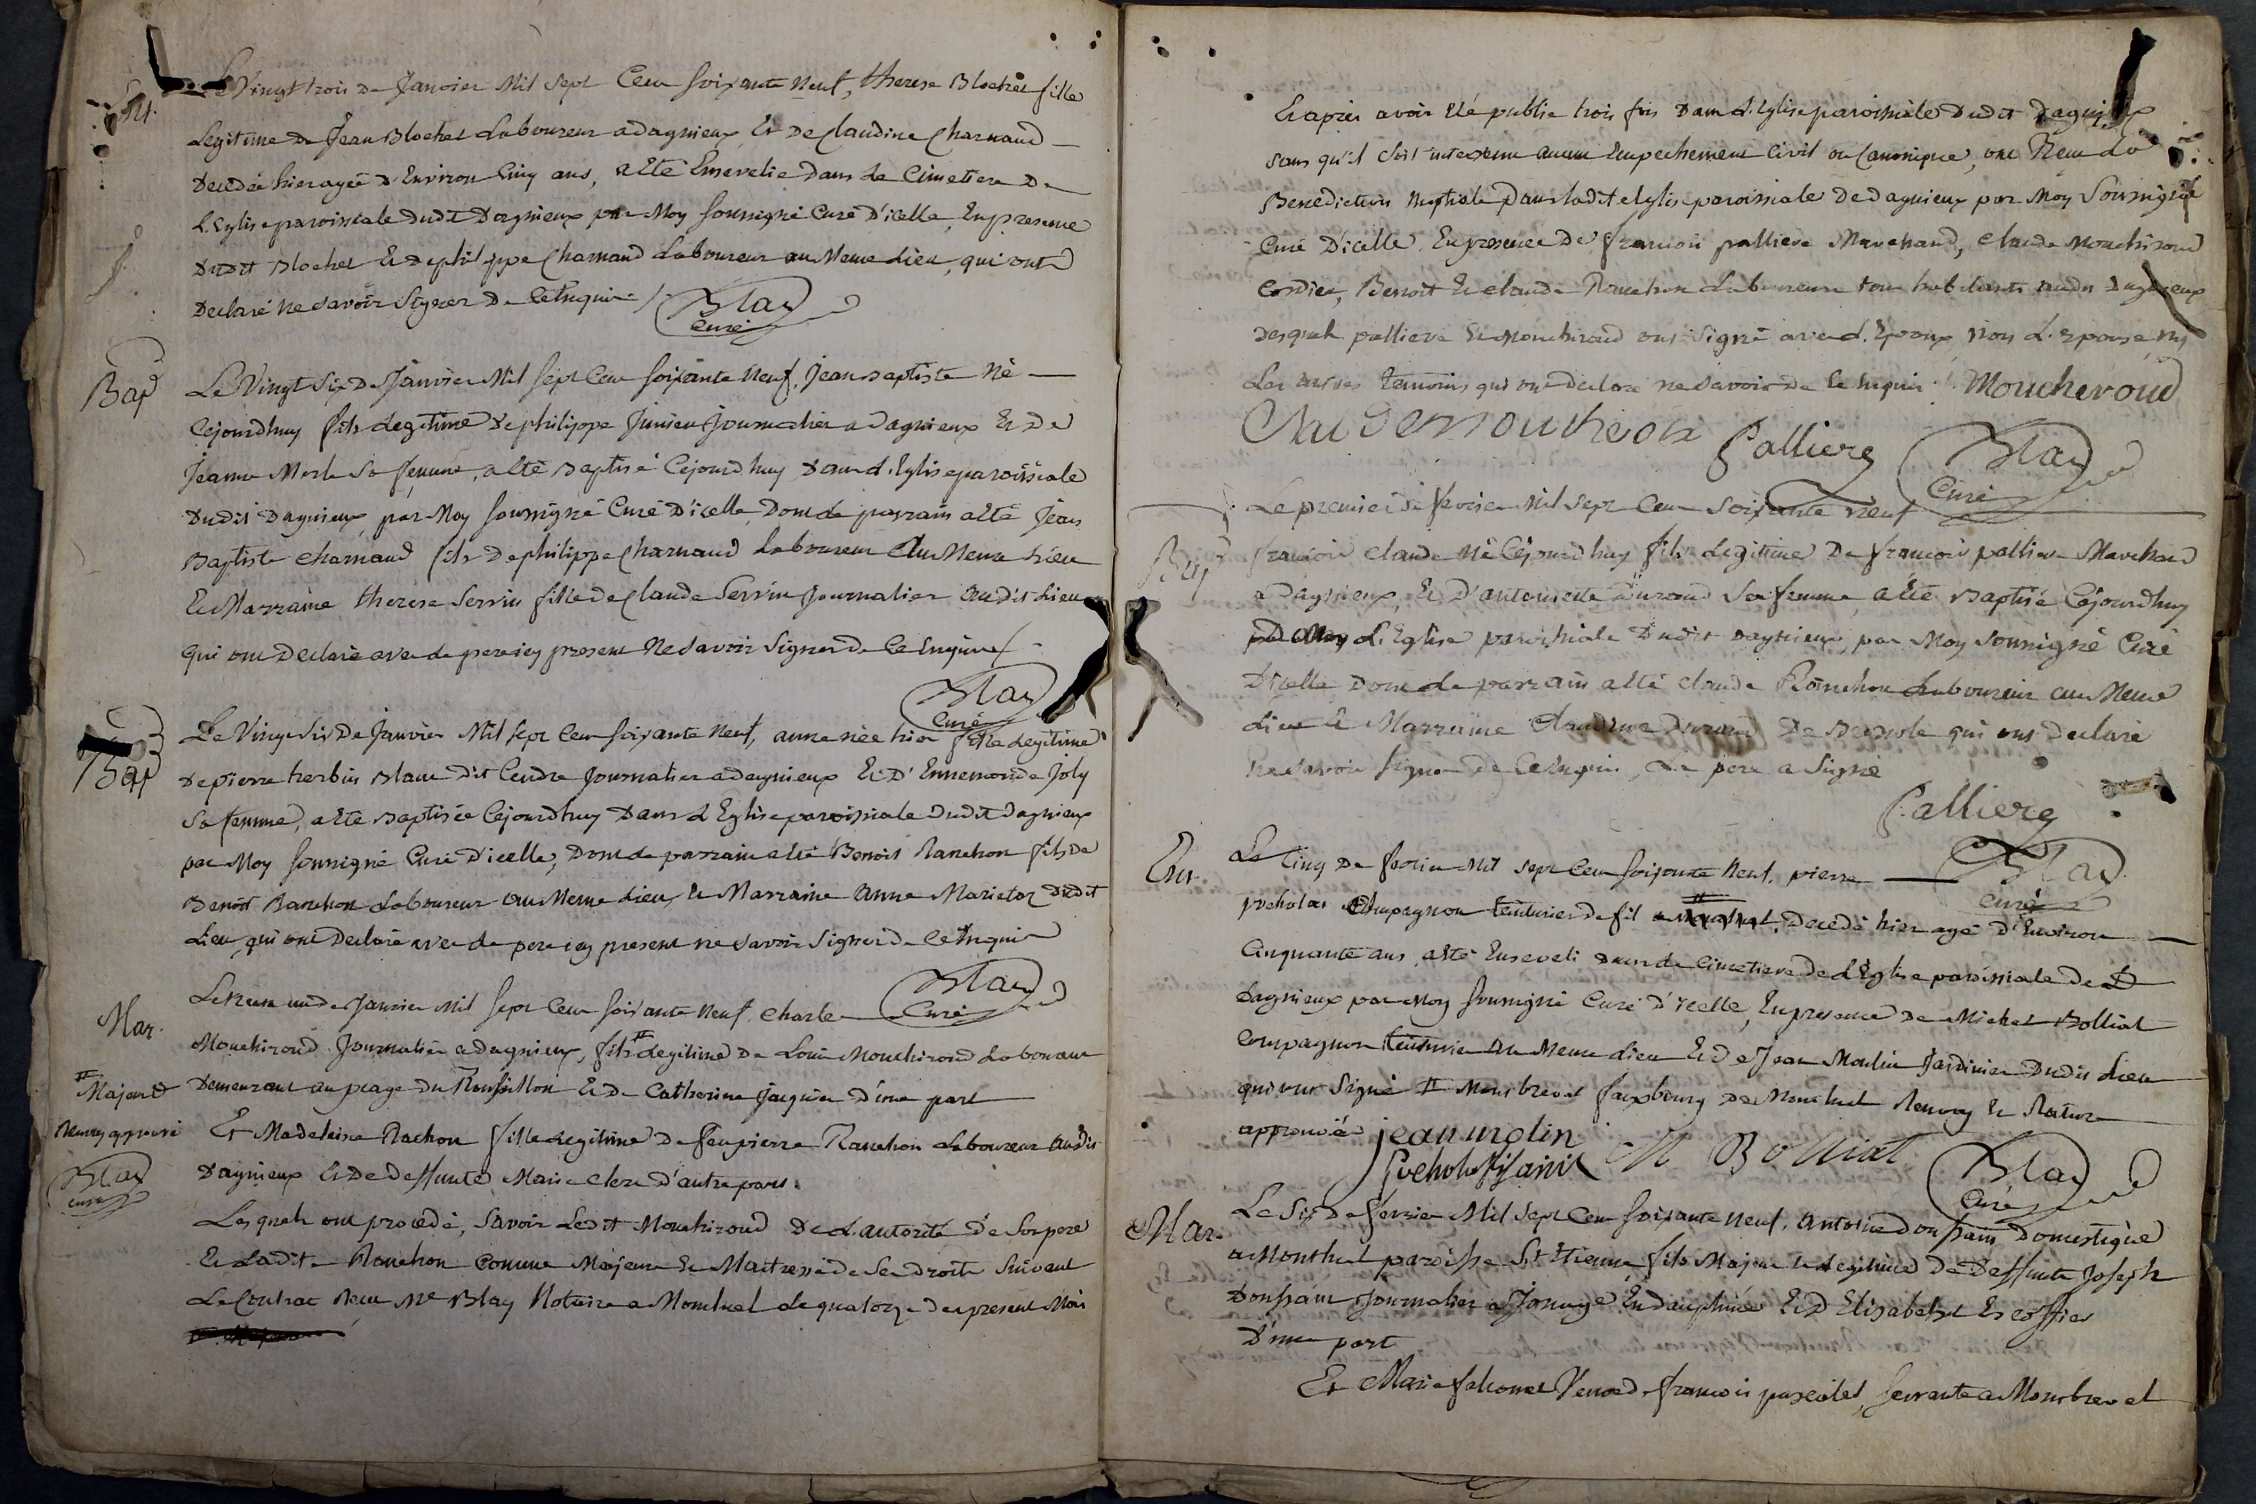 Le Vingt trois de Janvier Mil Sept Cent soixante neuf, therese Blochet fille
Legitime de Jean Blochet Laboureur a dagnieux Et de Claudine Charnaud
Decedée hier agée d'Environ Cinq ans, a Eté Ensevelie dans Le Cimetiere De
L'Eglise paroissiale dudit Dagnieux par Moy soussigné Curé D'icelle, En presence
Dudit Blochet Et de philippe Charnaud Laboureur au Meme Lieu, qui ont
Declaré ne Savoir Signer De Ce Enquis
Blay
Curé
Bap
Le Vingt Six De Janvier Mil Sept Cent Soixante Neuf, Jean Baptiste Né
Cejourdhuy fils Legitime De philippe Junieu Journalier a Dagnieux Et De
Jeanne Merle Sa femme, a Eté Baptisé Cejourdhuy Dans L'Eglise paroissiale
Dudit Dagnieux par Moy soussigné Curé D'icelle, Dont Le parrain a Eté Jean
Baptiste Charnaud fils De philippe Charnaud Laboureur Au Meme Lieu
Et Marraine therese Servin fille de Claude Servin Journalier audit Lieu
qui ont Declaré avec Le pere icy present Ne Savoir Signer De Ce Enquis
Blay
Curé
Bap
Le Vingt Six De Janvier Mil Sept Cent Soixante Neuf, anne née hier fille Legitime
De pierre herbin Blanc dit Cendre Journalier a dagnieux Et D'Ennemonde Joly
Sa femme, a Eté Baptisée Cejourdhuy Dans L'Eglise paroissiale Dudit Dagnieux
par Moy soussigné Curé D'icelle, Dont Le parrain a Eté Benoit Ranchon fils De
Benoit Ranchon Laboureur au Meme Lieu et Marraine Anne Marietoz Dudit
Lieu, qui ont Declaré avec Le pere icy present ne Savoir Signer De Ce Enquis
Blay
Curé
Mar.
Le trente un de Janvier Mil Sept Cent Soixante Neuf. Charle
Mouchiroud Journalier a dagnieux, fils Legitime De Louis Mouchiroud Laboureur
Demeurant au peage Du Roussillon Et De Catherine Jaquier D'une part
Majeur
Renvoy approuvé
Blay
Curé
Et Madeleine Rachon fille Legitime De feu pierre Ranchon Laboureur audit
Dagnieux Et De Deffunte Marie Clerc D'autre part.
Lesquels ont procedé, Savoir Ledit Mouchiroud De L'autorité De Son pere
Et Ladite Ranchon Comme Majeure Et Maitresse de Ses Droits Suivant
Le Contrat Recu Me Blay Notaire a Montluel Le quatorze du present Mois
Et apres avoir Eté publié trois fois Dans L'Eglise paroissiale Dudit Dagnieux
Sans qu'il Soit intervenu aucun Empechement Civil ou Canonique, ont Recu La
Benediction Nuptiale Dans Ladite Eglise paroissiale De dagnieux par Moy Soussigné
Curé D'icelle. En presence De francois palliere Marchand, Claude Mouchiroud
Cordier, Benoit Et Claude Ranchon Laboureurs tous habitants audit Dagnieux
Desquels palliere Et Mouchiroud ont Signé avec L'Epoux, Non L'Epouse Ny
Les autres temoins qui ont declaré ne Savoir De Ce Enquis. Moucheroud
Palliere
Blay
Curé
Bap
Le premier de fevrier Mil Sept Cent Soixante Neuf
francois Claude Né Cejourdhuy fils Legitime De francois palliere Marchand
a Dagnieux, Et D'antoinette Durand Sa femme a Eté Baptisé Cejourdhuy
L'Eglise paroissiale Dudit Dagnieux par Moy Soussigné Curé
D'icelle Dont Le parrain a Eté Claude Ranchon Laboureur au Meme
Lieu Et Marraine Claudine Durand De qui ont Declaré
Ne Savoir Signer De Ce Enquis, Le pere a Signé
Palliere
Blay
Curé
Ent.
Le Cinq De fevrier Mil Sept Cent Soixante Neuf. pierre
Compagnon teinturier de fil Decedé hier agé D'Environ
Cinquante ans, a Eté Enseveli Dans Le Cimetiere De L'Eglise paroissiale De
Dagnieux par Moy Soussigné Curé D'icelle, En presence De Michel Bolliat
Compagnon teinturier Au Meme Lieu Et De Jean Moulin Jardinier Dudit Lieu
qui ont Signé # Montbrevet fauxbourg De Montluel Renvoy Et Rature
approuvée
jean molin
M Bolliat
Blay
Curé
Mar.
Le Six De fevrier Mil Sept Cent Soixante Neuf. Antoine Donsain Domestique
a Montluel paroisse St Etienne fils Majeur Et Legitime De Deffunte Joseph
Donsain Journalier a Jonage En Dauphiné Et D'Elizabeth Escoffier
D'une part
Et Marie falconet Veuve De francois pascalet, Servante a Montbrevet